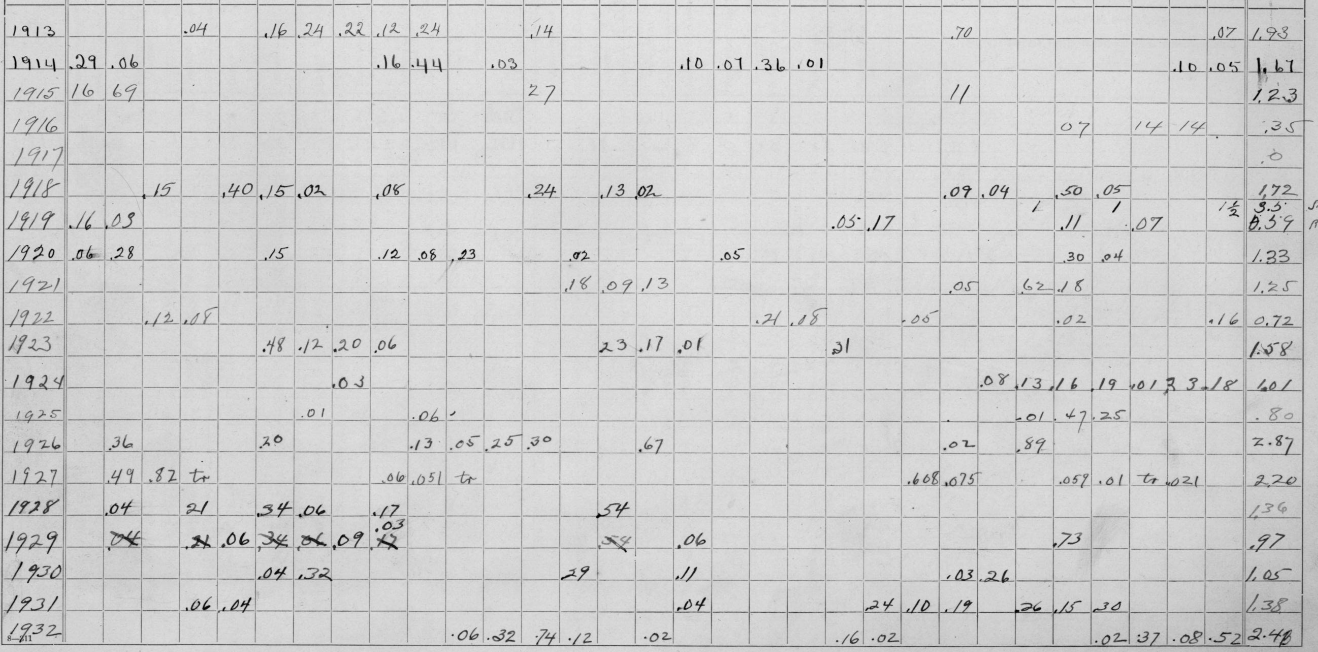 1913 .04 .16 .24 .22 .12 .24 .14 .70 .07 1.93
1914 .29 .06 .16 .44 .03 .10 .07 .36 .01 .10 .05 1.67
1915 16 69 27 11 1.23
1916 07 14 14 .35
1917 .0
1918 .15 .40 .15 .02 .08 .24 .13 .02 .09 .04 .50 .05 1.72
1 1 1½ 3.5
1919 .16 .03 .05 .17 .11 .07 0.59
1920 .06 .28 .15 .12 .08 .23 .02 .05 .30 .04 1.33
1921 .18 .09 .13 .05 .62 .18 1.25
1922 .12 .08 .21 .08 .05 .02 .16 0.72
1923 .48 .12 .20 .06 23 .17 .01 .31 1.58
1924 .03 .08 .13 .16 .19 .01 23 .18 1.01
1925 .01 .06 .01 .47 .25 .80
1926 .36 .20 .13 .05 .25 .30 .67 .02 .89 2.87
1927 .49 .82 tr .06 .051 tr .608 .075 .059 .01 tr .021 2.20
1928 .04 21 .34 .06 .17 .54 1.36
.03
1929 .04 .21 .06 .34 .06 .09 .17 .54 .06 .73 .97
1930 .04 .32 29 .11 .03 .26 1.05
1931 .06 .04 .04 .24 .10 .19 .26 .15 .30 1.38
1932 .06 .32 .74 .12 .02 .16 .02 .02 .37 .08 .52